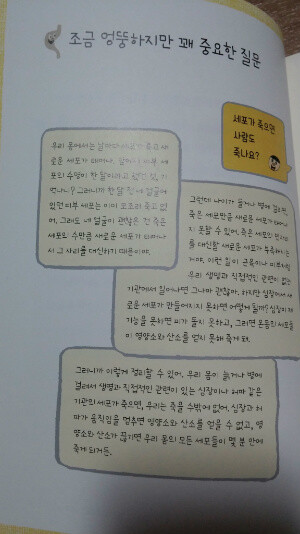 조금 엉뚱하지만 꽤 중요한 질문
세포가 죽으면
사람도
죽나요?
우리 몸에서는 날마다 세포가 죽고 새
로운 세포가 태어나.
포의 수명이 한 달이라고 했던 것, 기
억나니? 그러니까 한 달 전에 얼굴에
있던 피부 세포는 이미 모조리 죽고 없
어. 그래도 내 얼굴이 괜찮은 건 죽은
세포의 수만큼 새로운 세포가 태어나
서 그 자리를 대신하기 때문이야.
그런데 나이가 들거나 병에 걸리면,
죽은 세포만큼 새로운 세포가 태어나
지 못할 수 있어. 죽은 세포의 빈자리
를 대신할 새로운 세포가 부족하다는
거야. 이런 일이 근육이나 피부처럼
우리 생명과 직접적인 관련이 없는
기관에서 일어나면 그나마 괜찮아. 하지만 심장에서 새
로운 세포가 만들어지지 못하면 어떻게 될까? 심장이 제
기능을 못하면 피가 돌지 못하고, 그러면 온몸의 세포들
이 영양소와 산소를 얻지 못해 죽게 돼.
그러니까 이렇게 정리할 수 있어. 우리 몸이 늙거나 병에
걸려서 생명과 직접적인 관련이 있는 심장이나 허파 같은
기관의 세포가 죽으면, 우리는 죽을 수밖에 없어. 심장과 허
파가 움직임을 멈추면 영양소와 산소를 얻을 수 없고, 영
양소와 산소가 끊기면 우리 몸의 모든 세포들이 몇 분 안에
죽게 되거든.